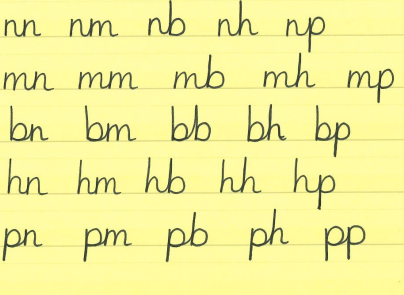 nn nm nb nh np
mn mm mb mh mp
bn bm bb bh bp
hn hm hb hh hp
pn pm pb ph pp